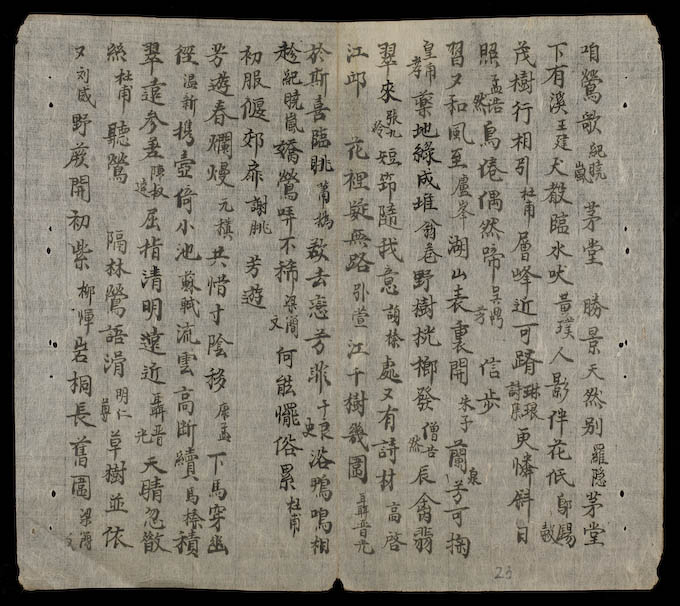 咱鶯歌紀曉嵐 茅堂 勝景天然別羅隐茅堂
下有溪王建犬散臨水吠黄璞人影伴花低歐陽
茂樹行相引杜甫層峰近可躋琳琅更憐斜日
照孟浩然鳥倦偶然啼吴鼎芳 信步
習又和風至盧峯湖山表裏開朱子蘭泉芳可掬
皇甫孝藥地緑成堆翁卷野樹桄榔發僧然辰禽翡
翠來張九令短笻隨我意胡榛處又有詩材高啓
江邱 花裡疑無路引萱江千樹幾圍聶晉光
於斯喜臨眺欲去恋芳菲于良史浴鴨鳴相
趁紀曉嵐嬌鶯哢不稀梁簡文何能擺俗累杜甫
初服偃郊扉謝朓 芳遊
芳遊春爛熳元稹共惜寸陰移康孟下馬穿幽
徑温新携壺倚小池蘇軾流雲高斷續馬榛積
翠遠參差陳叔逵屈指清明遠近聶晋光天晴忽散
絲杜甫 聽鶯 隔林鶯語滑明仁尊草樹並依
又刘威野蕨開初紫柳惲岩桐長舊圍梁簡文
23